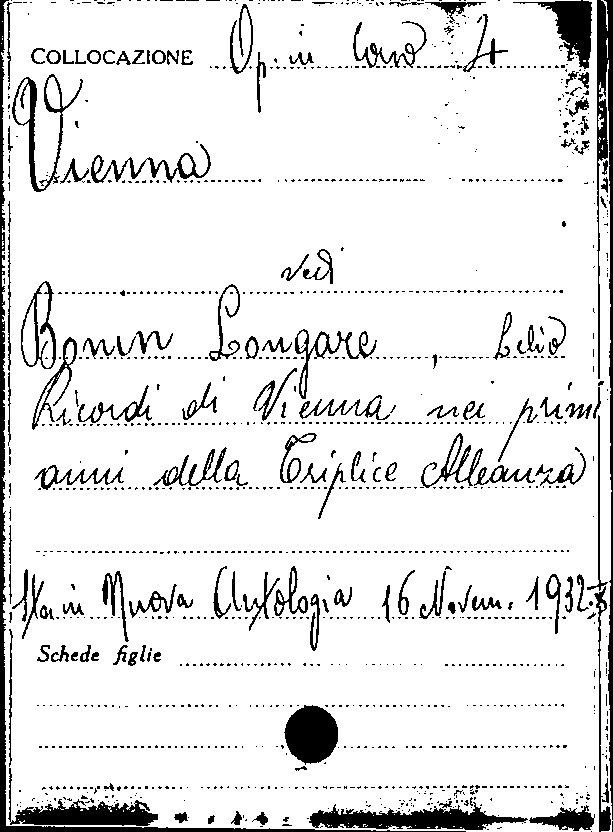 COLLOCAZIONE Op. in 4
Vienna
vedi
Bonin Longare, Lelio
Ricordi di Vienna nei primi
anni della Triplice Alleanza
Sta in Nuova Antologia 16 Novem. 1932
Schede figlie